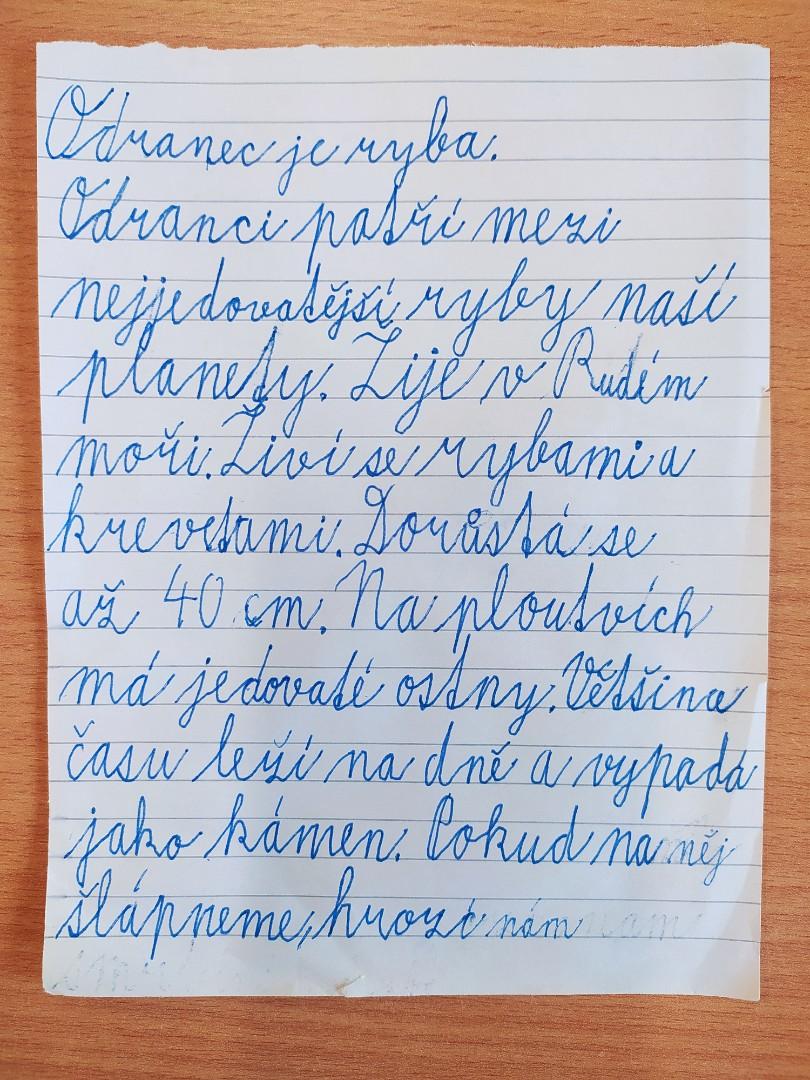 Odranec je ryba.
Odranci patří mezi
nejjedovatější ryby naší
planety. Žije v Rudém
moři. Živí se rybami a
krevetami. Dorůstá se
až 40 cm. Na ploutvích
má jedovaté ostny. Většinu
času leží na dně a vypadá
jako kámen. Pokud na něj
šlápneme, hrozí nám